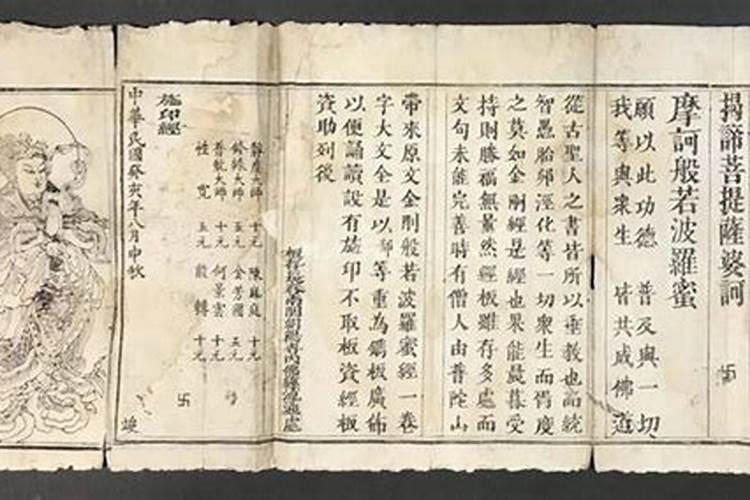 揭諦菩提薩婆訶
卍
摩訶般若波羅蜜
願以此功德 普及與一切
我等與眾生 皆共成佛道
從古聖人之書皆所以垂教也而統
智愚胎卵溼化等一切眾生而胥度
之莫如金剛經是經也果能晨暮受
持則勝福無量然經板雖存多處而
文句未能完善時有僧人由普陀山
帶來原文金剛般若波羅蜜經一卷
字大文全是以等重為鐫板廣佈
以便誦讀設有施印不取板資經板
資助列後
施印經
大師 十元 陳庭 十元
大師 五元 金芳 五元
大師 十元 何景雲 十元
性寬 五元 轉 十元
卍
中華民國癸亥年八月中秋
竣